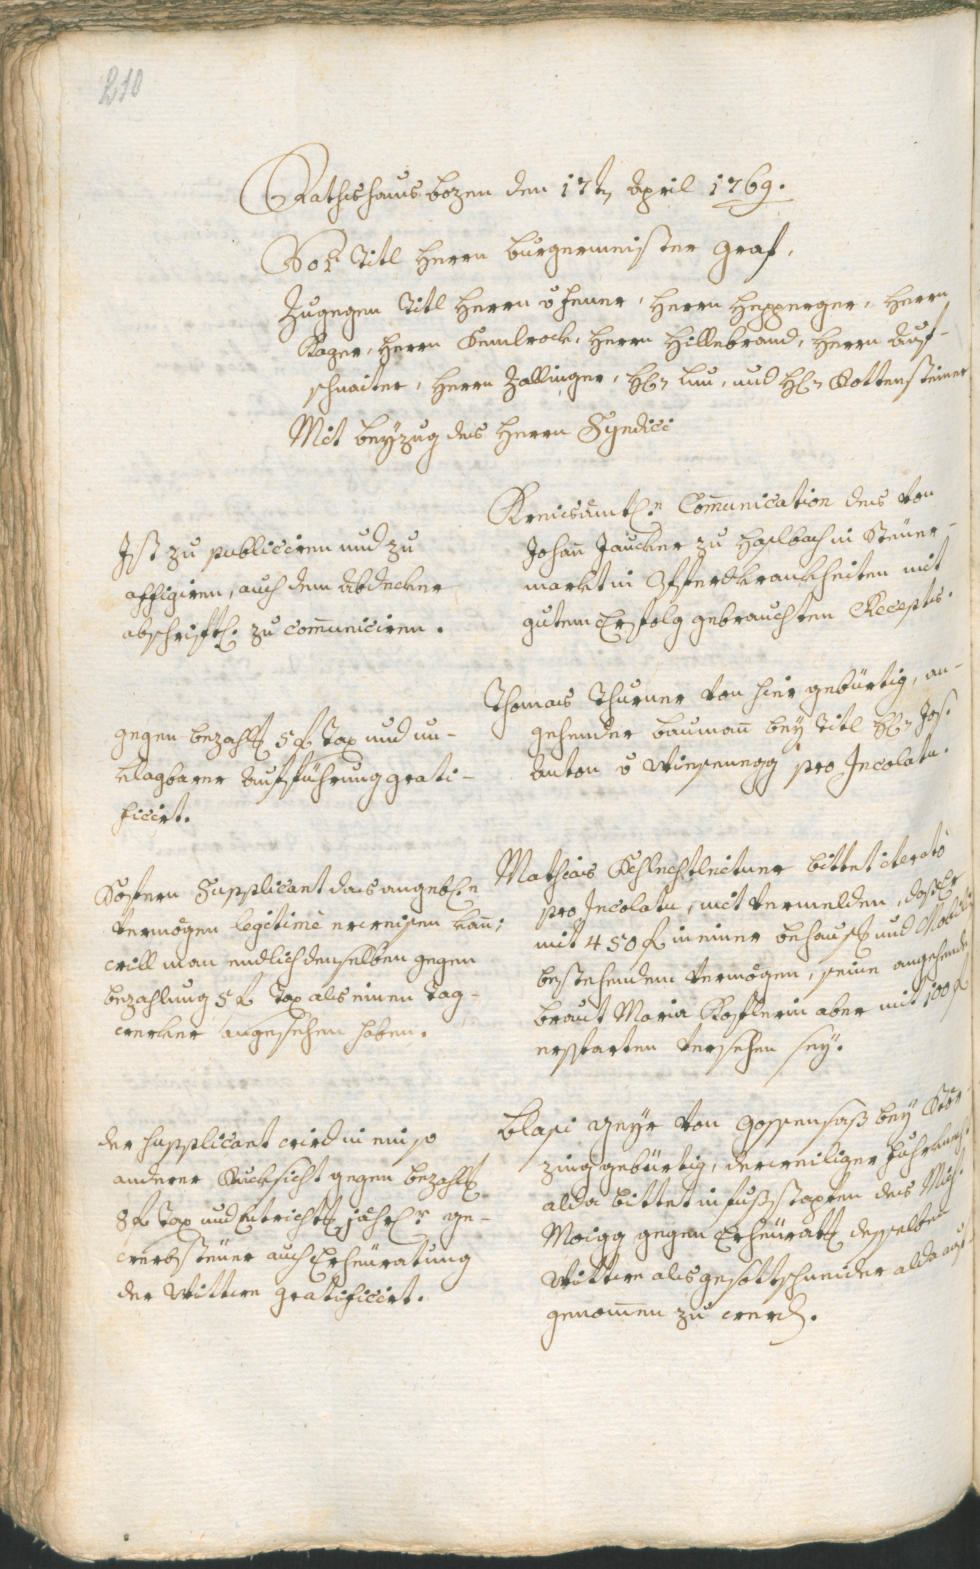 210
Rathshaus Bozen den 17t. April 1769.
Vor Titl Herrn Burgermeister Graf,
Zugegen Titl Herrn v Feuer, Herrn Hepperger, Herrn
Kager, Herrn Semlrock, Herrn Hillebrand, Herrn Auf-
schnaiter, Herrn Zallinger, H. Luu, und H. Kottensteiner
Mit beÿzug des Herrn Syndici
Kreisämtl. Com̅unication des von
Johan̅ Jaucker zu Haslbach in Steüer-
markt in Pferdkrankheiten mit
gutem Erfolg gebrauchten Recepts.
Ist zu publiciren und zu
affigiren, auch dem Abdecker
abschriftl. zu com̅uniciren.
Thomas Thurner von hier gebürtig, an-
gehender Bauman̅ bey Titl H. Jos.
Anton v Wiesenegg pro Incolatu.
gegen bezahlg 5 f Tax und un-
klagbarer Aufführung grati-
ficirt.
Mathias Schlechtleitner bittet iterato
pro Incolatu, mit vermelden, daß Er
mit 450 f in einer behausg und Mobilien
bestehendem vermögen, seine angehende
braut Maria Koflerin aber mit 100 f
ersparten versehen seÿ.
Sofern Supplicant das angebl.
vermögen legitimè erweisen kan̅;
will man endlich denselben gegen
bezahlung 5 f Tax als einen Tag-
werker angesehen haben.
Blasi Geyr von Gossensaß beÿ Ster-
zing gebürtig, derweiliger
alda bittet in fußstapfen des Mich.
Moigg gegen Erheüratg desselben
Wittwe als gesottschneider alda auf-
genom̅en zu werd.
der Supplicant wird in ein so
anderer Rucksicht gegen bezahlg
8 f Tax und Entrichtg jährl.r ge-
werbsteüer auch Erheüratung
der Wittwe gratificirt.